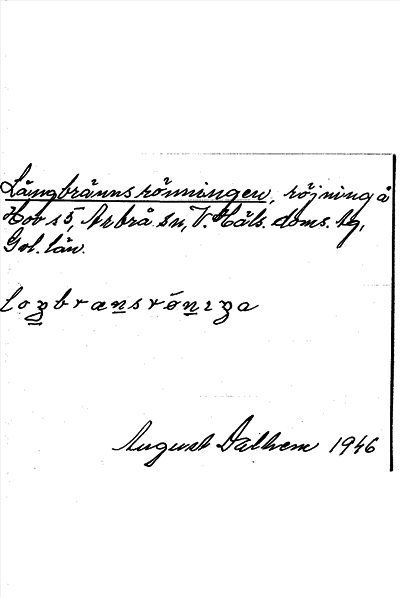 Långbrännsrönningen, röjning å
Hov s5, Arbrå sn, V. Häls. doms. tg,
Gvl. län.
loŋbransrōnıŋa
August Dalhem 1946